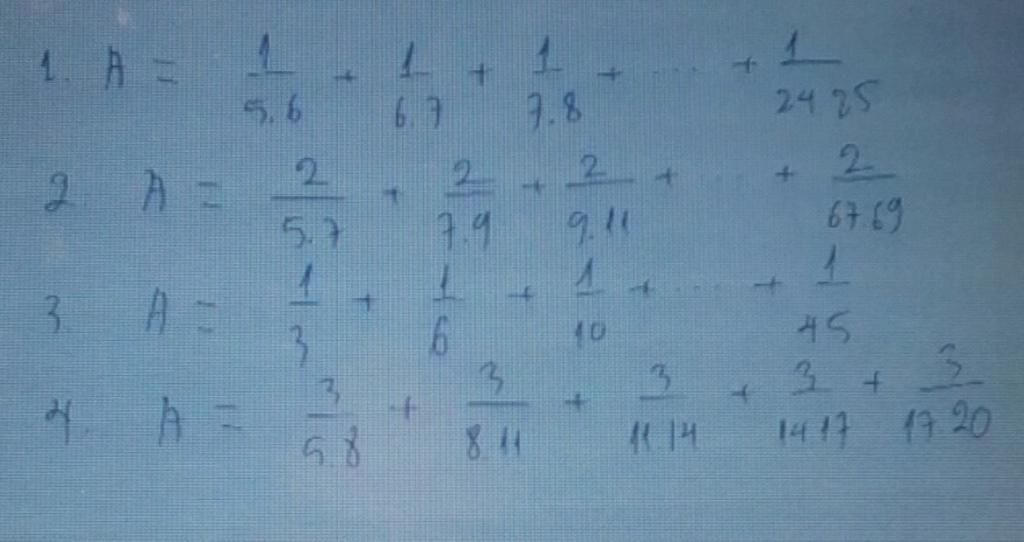 1. A = 1/5.6 + 1/6.7 + 1/7.8 + ... + 1/24.25
2. A = 2/5.7 + 2/7.9 + 2/9.11 + ... + 2/67.69
3. A = 1/3 + 1/6 + 1/10 + ... + 1/45
4. A = 3/5.8 + 3/8.11 + 3/11.14 + 3/14.17 + 3/17.20